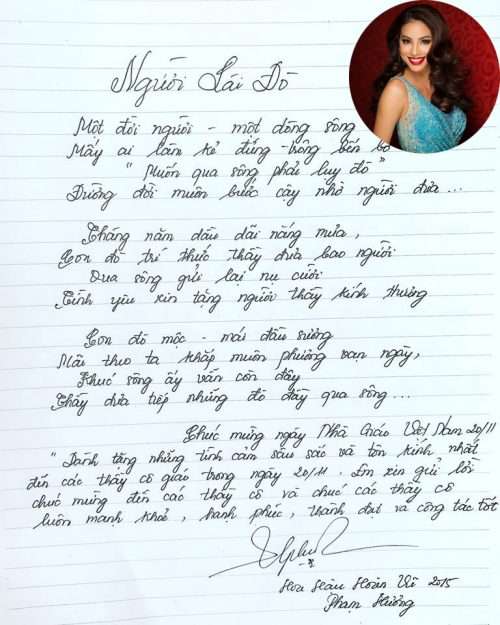 Người Lái Đò
Một đời người - một dòng sông
Mấy ai làm kẻ đứng trông bến bờ
"Muốn qua sông phải lụy đò"
Đường đời muôn bước cậy nhờ người đưa ...
Tháng năm dầu dãi nắng mưa,
Con đò trí thức thầy đưa bao người
Qua sông gửi lại nụ cười
Tình yêu xin tặng người thầy kính thương
Con đò mộc - mái đầu sương
Mãi theo ta khắp muôn phương vạn ngày,
Khúc sông ấy vẫn còn đây
Thầy đưa tiếp những đò đầy qua sông ...
Chúc mừng ngày Nhà Giáo Việt Nam 20/11
"Dành tặng những tình cảm sâu sắc và tôn kính nhất
đến các thầy cô giáo trong ngày 20/11. Em xin gửi lời
chúc mừng đến các thầy cô và chúc các thầy cô
luôn mạnh khoẻ, hạnh phúc, thành đạt và công tác tốt
Hoa Hậu Hoàn Vũ 2015
Phạm Hương